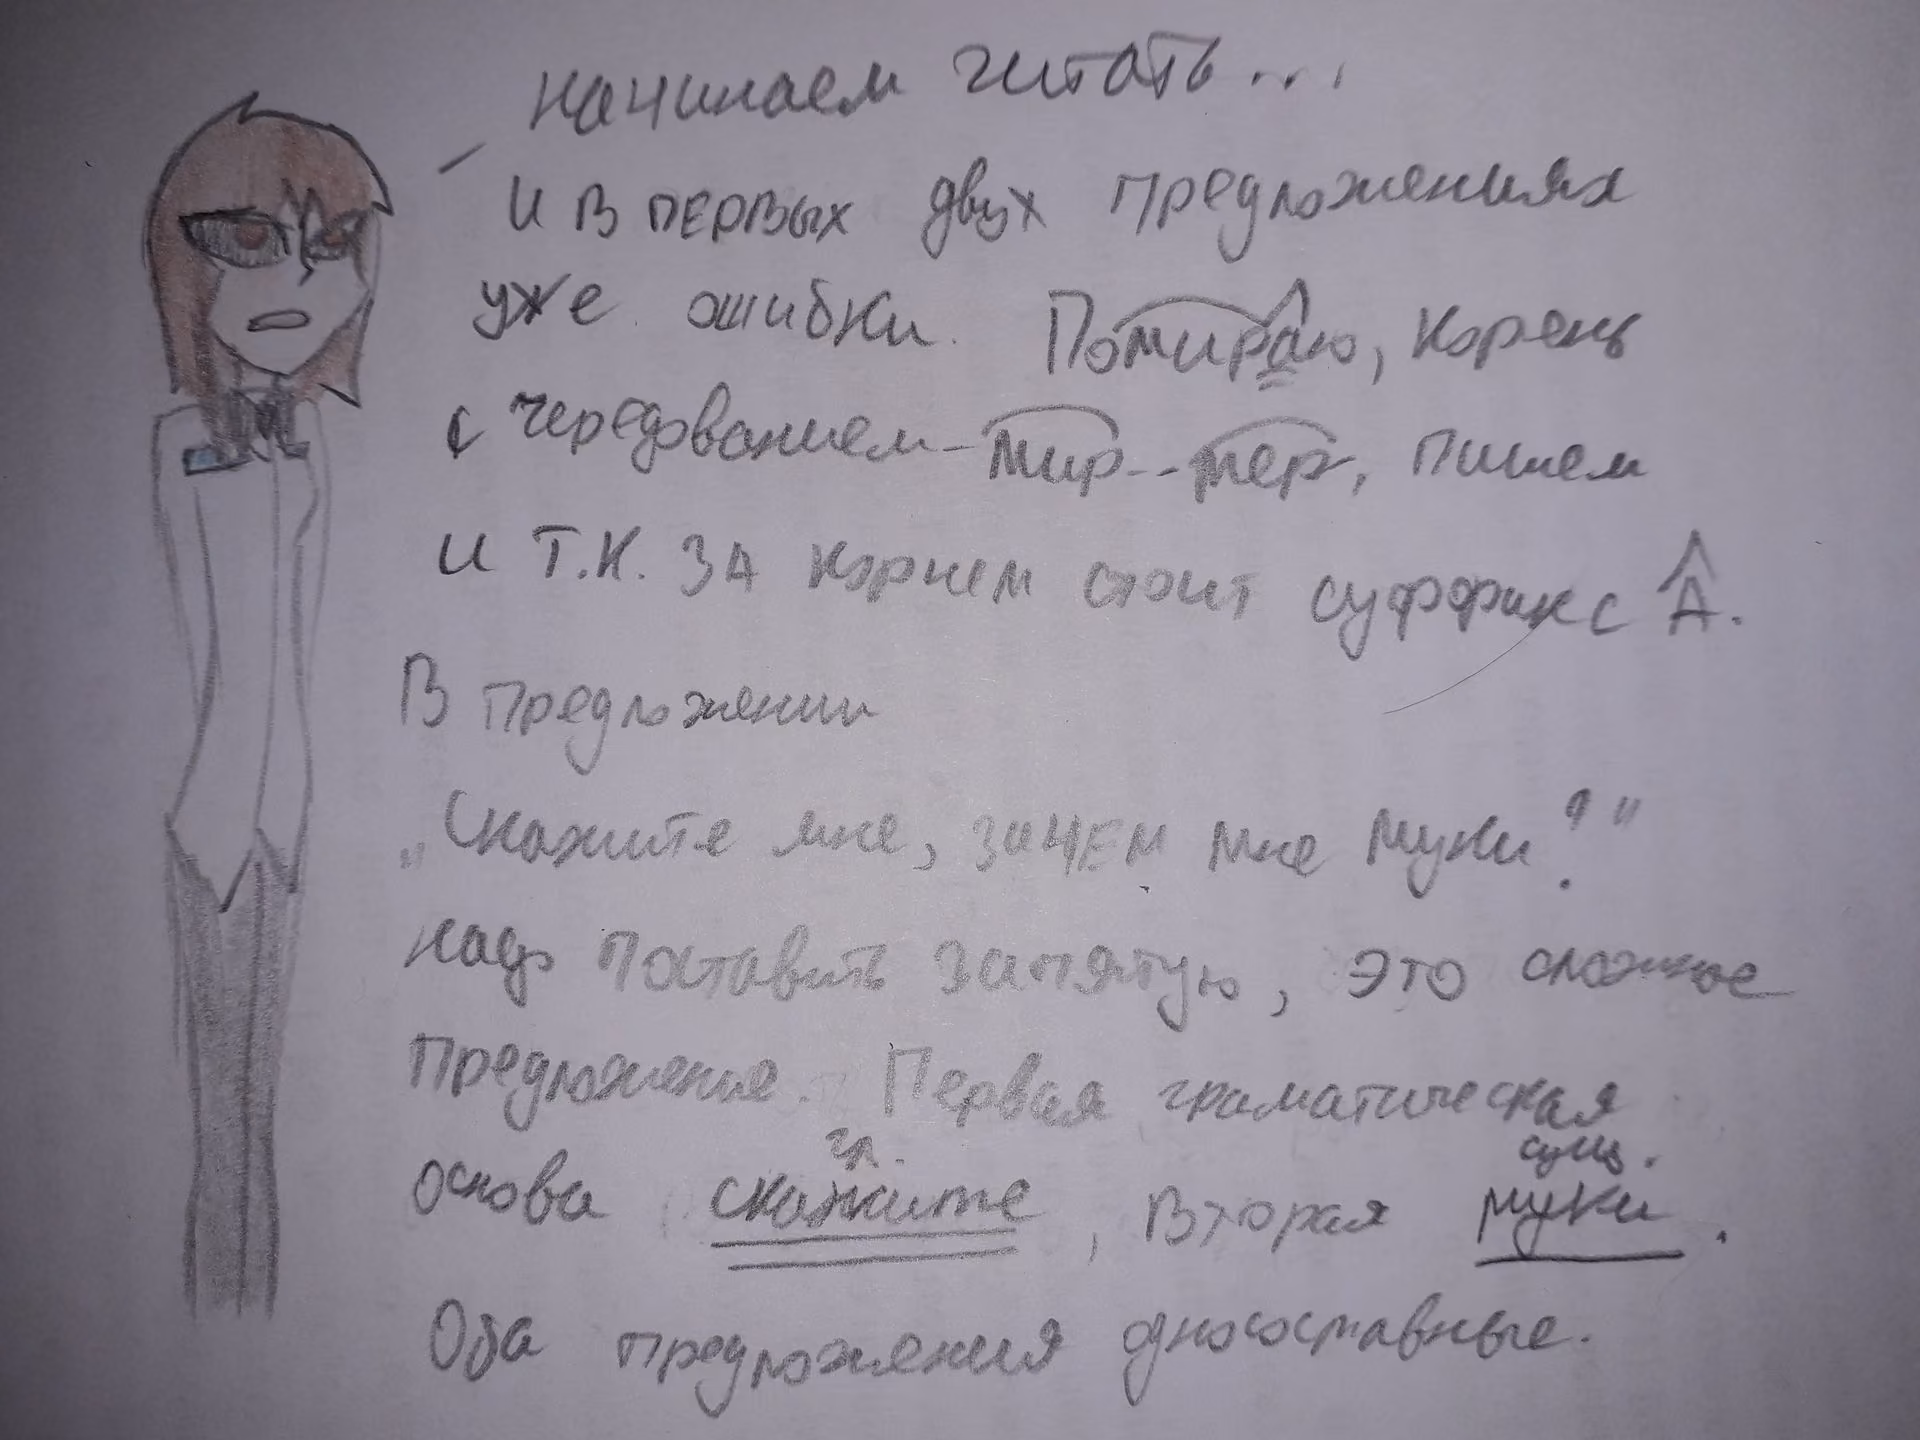 начинаем читать...
и в первых двух предложениях
уже ошибки. Помираю, корень
с чередованием -мир--мер, пишем
и т.к. за корнем стоит суффикс А.
В предложении
„Скажите мне, зачем мне муки?"
надо поставить запятую, это сложное
предложение. Первая граматическая
гл. сущ.
основа скажите, вторая муки.
Оба предложения односоставные.